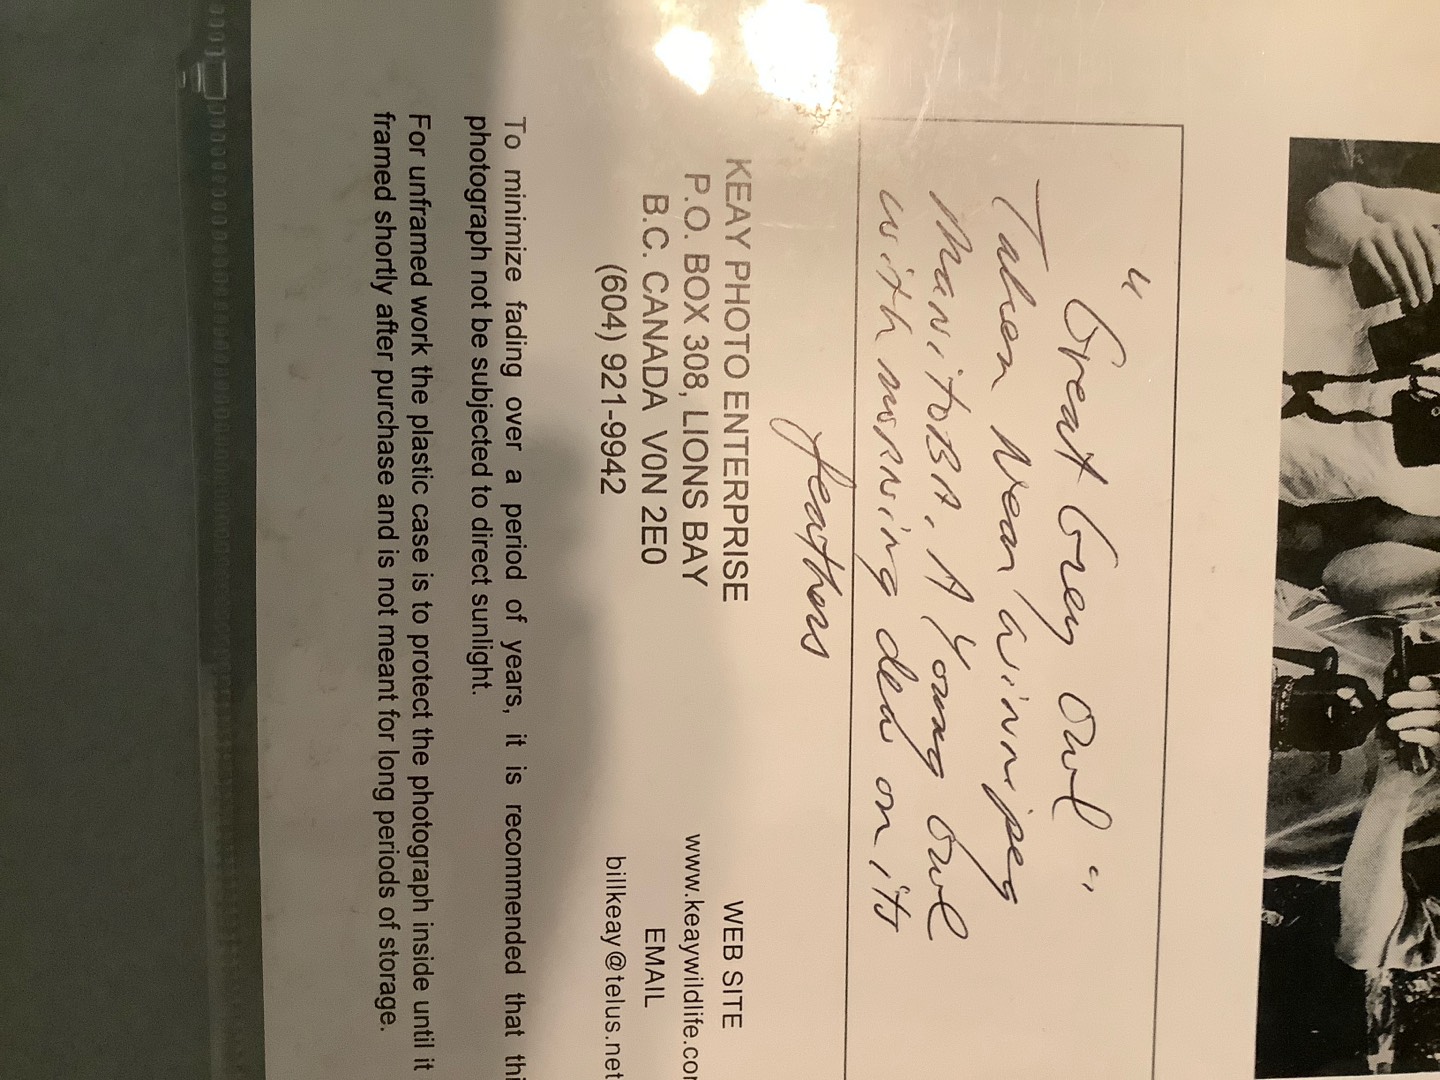 "Great Grey Owl"
Taken Near Winnipeg
Manitoba. A Young owl
with morning dew on its
feathers
KEAY PHOTO ENTERPRISE
P.O. BOX 308, LIONS BAY
B.C. CANADA V0N 2E0
(604) 921-9942
WEB SITE
www.keaywildlife.com
EMAIL
billkeay@telus.net
To minimize fading over a period of years, it is recommended that thi
photograph not be subjected to direct sunlight.
For unframed work the plastic case is to protect the photograph inside until it
framed shortly after purchase and is not meant for long periods of storage.